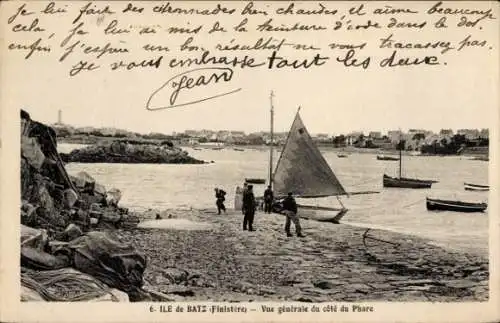 je lui fais des citronnades bien chaudes, et aime beaucoup
cela, je lui ai mis de la teinture d'iode dans le dos,
enfin, j'espère un bon résultat ne vous tracassez pas.
je vous embrasse tout les deux.
Jean
6. ILE de BATZ (Finistère) — Vue générale du côté du Phare